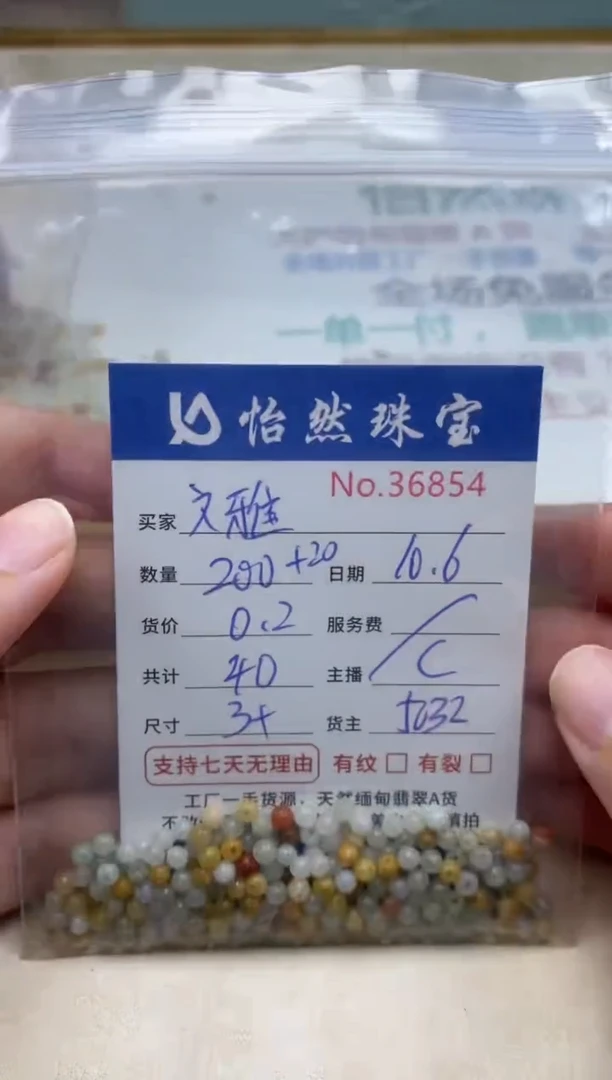 全场免
一单一
怡然珠宝
No.36854
买家 文雅
数量 200+20 日期 10.6
货价 0.2 服务费 /
共计 40 主播 C
尺寸 3+ 货主 J032
支持七天无理由 有纹 □ 有裂 □
工厂一手货源，天然缅甸翡翠A货
慎拍